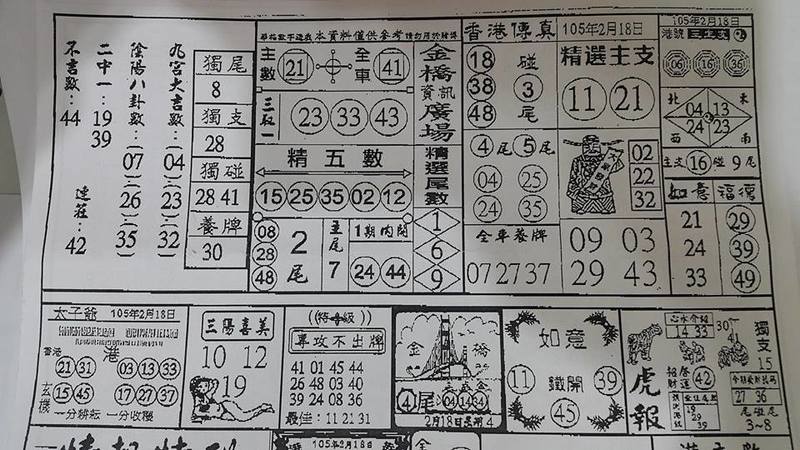 不言數: 44
二中一: 19
39
陰陽八卦數: (07)
(26)
(35)
九宮大吉數: (04)
(23)
(32)
連莊: 42
獨尾
8
獨支
28
獨碰
28 41
養牌
30
本資料僅供參考
主數 21 全車 41
23 33 43
精五數
15 25 35 02 12
08
28
48
2尾
主尾
7
1期內開
24 44
金橋資訊廣場
精選尾數
1
6
9
香港傳真 105年2月18日
18
38
48
碰
3
尾
精選主支
11 21
4尾 5尾
04 25
24 35
02
22
32
全車養牌
07 27 37
09 03
29 43
105年2月18日
港號
06 16 36
北 東
04 13
24 23
西 南
主支 16 碰 9尾
如意 福德
21 29
24 39
33 49
太子爺 105年2月18日
港
香港 21 31 03 13 33
玄機 15 45 17 27 37
一分耕耘 一分收穫
三陽喜美
10 12
19
((特級))
專攻不出牌
41 01 45 44
26 48 03 40
39 24 08 36
最佳: 11 21 31
金橋
4尾 04 14 34
2月18日星期4
如意
11 鐵開 39
45
虎報
心水介紹
14 33
招財
42
19
29
39
30
41
獨支
15
27 36
尾碰尾
3~8
105年2月18日